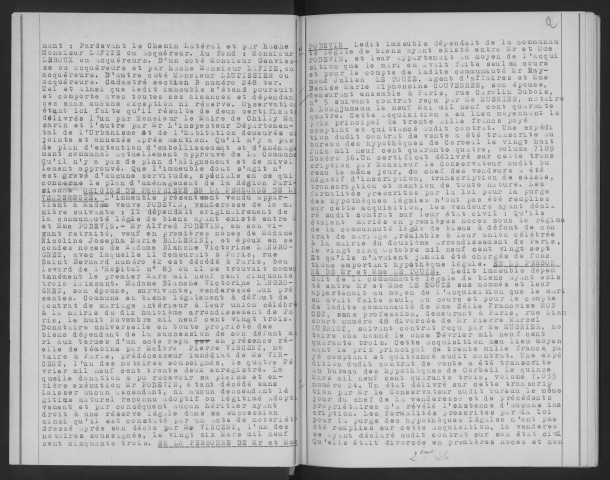 nant : Pardevant le Chemin Latéral et par hache
Monsieur LAFITE ou acquéreur. Au fond : Monsieur
LEROUX ou acquéreurs. D'un coté Monsieur
se ou acquéreurs et par hache Monsieur LAFITE, ou
acquéreurs. D'autre coté Monsieur LAUTISSIER ou
acquéreurs. Cadastré section B numéro 248 ter.
Tel et ainsi que ledit immeuble s'étend poursuit
et comporte avec toutes ses aisances et dépendan
ces sans aucune exception ni réserve. Observation
étant ici faite qu'il résulte de deux certificats
délivrés l'un par Monsieur le Maire de Chilly Ma
zarin et l'autre par Mr l'Inspecteur Départemen-
tal de l'Urbanisme et de l'habitation demeurés ci
joints et annexés après mention. Qu'il n'y a pas
de plan d'extention d'embellissement et d'aménage
ment communal actuellement approuvé de la Commune
Qu'il n'y a pas de plan d'alignement et de nivel
lement approuvé. Que l'immeuble dont s'agit n'
est grevé d'aucune servitude, spéciale en ce qui
concerne le plan d'aménagement de la Région Pari
sienne. ORIGINE DE PROPRIETE EN LA PERSONNE DE LA
VENDERESSE. L'immeuble présentement vendu appar-
tient à Madame veuve PODEVIN, venderesse de la ma
nière suivante : Il dépendait originairement de
la communauté légale de biens ayant existé entre
Mr et Mme PODEVIN.- Mr Alfred PODEVIN, en son vi-
vant retraité, veuf en premières noces de Madame
Nicoline Josepha Marie BALLERINI, et époux en se
condes noces de Madame Blanche Victorine LHEMO-
GNET, avec laquelle il demeurait à Paris, rue
Saint Bernard numéro 42 est décédé à Paris, bou
levard de l'Hopital n° 83 ou il se trouvait momen
tanément le premier Mars mil neuf cent cinquante
trois laissant. Madame Blanche Victorine
GNET, son épouse, survivante, venderesse aux pré
sentes. Commune en biens légalement à défaut de
contrat de mariage antérieur à leur union célébrée
à la mairie du dix huitième arrondissement de Pa
ris, le huit Novembre mil neuf cent vingt trois.
Donataire universelle en toute propriété des
biens dépendant de la succession de son défunt ma
ri aux termes d'un acte reçu par en présence ré-
elle de témoins par Maître Pierre VINCENT, no-
taire à Paris, prédécesseur immédiat de Me VIN-
CENT, l'un des notaires soussignés, le quatre Fé
vrier mil neuf cent trente deux enregistré. La
quelle donation a pu recevoir sa pleine et en-
tière exécution Mr PODEVIN, étant décédé sans
laisser aucun ascendant, ni aucun descendant lé
gitime naturel reconnu adoptif ou légitimé adopti
vement et par conséquent aucun héritier ayant
droit à une réserve légale dans sa succession
ainsi qu'il est constaté par un acte de notoriété
dressé après son décès par Me VINCENT, l'un des
notaires soussignés, le vingt six Mars mil neuf
cent cinquante trois. EN LA PERSONNE DE Mr et Mme
2
PODEVIN. Ledit immeuble dépendait de la communau
té légale de biens ayant existé entre Mr et Mme
PODEVIN, et leur appartenait au moyen de l'acqui
sition que le mari en avait faite seul au cours
et pour le compte de ladite communauté Mr Ray-
mond Julien LE DOUER, agent d'affaires et Mme
Denise Marie Alphonsine GOUVERSER, son épouse,
demeurant ensemble à Paris, rue Carolin Duois,
n° 5 suivant contrat reçu par Me MUSNIER, notaire
à Longjumeau le neuf Mai mil neuf cent quarante
quatre. Cette acquisition a eu lieu moyennant le
prix principal de trente mille francs payé
comptant et quittancé audit contrat. Une expédi
tion dudit contrat de vente a été transcrite au
bureau des hypothèques de Corbeil le vingt huit
Juin mil neuf cent quarante quatre, volume 7185
numéro 36. Un certificat délivré sur cette trans
cription par Monsieur le Conservateur audit bu
reau le même jour, du chef des vendeurs a été
négatif d'inscription, transcription de saisie,
transcription et mention de toute nature. Les
formalités prescrites par la loi pour la purge
des hypothèques légales n'ont pas été remplies
sur cette acquisition, les vendeurs ayant décla
ré audit contrat sur leur état civil : Qu'ils
étaient mariés en premières noces sous le régime
de la communauté légale de biens à défaut de con
trat de mariage, préalable à leur union célébrée
à la mairie du douzième arrondissement de Paris,
le vingt cinq octobre mil neuf cent vingt sept
Et qu'ils n'avaient jamais été chargés de fonc
tions emportant hypothèque légale. EN LA PERSON
NE DE Mr et Mme LE DOUER. Ledit immeuble dépen
dait de la communauté légale de biens ayant exis
té entre Mr et Mme LE DOUER sus nommés et leur
appartenait au moyen de l'acquisition que le mari
en avait faite seul, au cours et pour le compte de
de ladite communauté de Mme Nélie Françoise
, sans profession, demeurant à Paris, rue
court numéro 40 divorcée de Mr Pierre Marcel
AUBRIOT, suivant contrat reçu par Me MUSNIER, no
taire sus nommé le onze Février mil neuf cent
quarante trois. Cette acquisition eut lieu moyen
nant le prix principal de trente mille francs pa
yé comptant et quittancé audit contrat. Une expé
dition dudit contrat de vente a été transcrite
au bureau des hypothèques de Corbeil le quinze
Mars mil neuf cent quarante trois, volume 7.035
numéro 21. Un état délivré sur cette transcrip
tion par Mr le Conservateur audit bureau le même
jour du chef de la venderesse et de précédents
propriétaires n'a révélé l'existence d'aucune ins
cription. Les formalités prescrites par la loi
pour la purge des hypothèques légales n'ont pas
été remplies sur cette acquisition, la venderes
se ayant déclaré audit contrat sur son état civil
Qu'elle était divorcée en premières noces et non